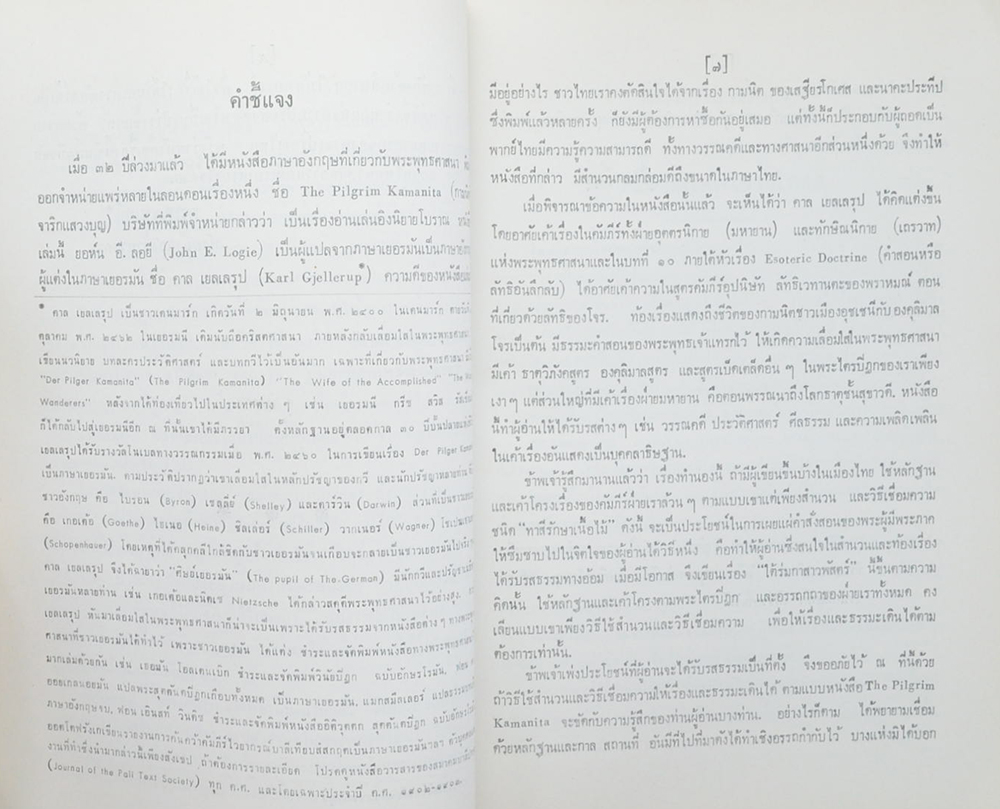 คำชี้แจง
เมื่อ ๓๒ ปีล่วงมาแล้ว ได้มีหนังสือภาษาอังกฤษที่เกี่ยวกับพระพุทธศาสนา
ออกจำหน่ายแพร่หลายในลอนดอนเรื่องหนึ่ง ชื่อ The Pilgrim Kamanita
จาริกแสวงบุญ) บริษัทที่พิมพ์จำหน่ายกล่าวว่า เป็นเรื่องอ่านเล่นอิงนิยายโบราณ
เล่มนี้ ยอห์น อี. ลอยี (John E. Logie) เป็นผู้แปลจากภาษาเยอรมันเป็นภาษาอังกฤษ
ผู้แต่งในภาษาเยอรมัน ชื่อ คาล เยลเลรุป (Karl Gjellerup*) ความดีของหนังสือเล่มนี้
* คาล เยลเลรุป เป็นชาวเดนมาร์ก เกิดวันที่ ๒ มิถุนายน พ.ศ. ๒๔๐๐ ในเดนมาร์ค
ตุลาคม พ.ศ. ๒๔๖๒ ในเยอรมนี เดิมนับถือคริสตศาสนา ภายหลังกลับเลื่อมใสในพระพุทธศาสนา
เขียนนวนิยาย บทละครประวัติศาสตร์ และบทกวีไว้เป็นอันมาก เฉพาะที่เกี่ยวกับพระพุทธศาสนา
"Der Pilger Kamanita" (The Pilgrim Kamanita) "The Wife of the Accomplished"
Wanderers" หลังจากได้ท่องเที่ยวไปในประเทศต่าง ๆ เช่น เยอรมนี กรีซ สวิส
ก็ได้กลับไปสู่เยอรมนีอีก ณ ที่นั้นเขาได้มีภรรยา ตั้งหลักฐานอยู่ตลอดกาล ๓๐ ปี
เยลเลรุปได้รับรางวัลโนเบลทางวรรณกรรมเมื่อ พ.ศ. ๒๔๖๐ ในการเขียนเรื่อง Der Pilger Kamanita
เป็นภาษาเยอรมัน. ตามประวัติปรากฏว่าเขาเลื่อมใสในหลักปรัชญาของกวี และนักปรัชญาหลายท่าน
ชาวอังกฤษ คือ ไบรอน (Byron) เชลลีย์ (Shelley) และดาร์วิน (Darwin) ส่วนที่เป็นชาวเยอรมัน
คือ เกอเต้อ (Goethe) ไฮเนอ (Heine) ชิลเล่อร์ (Schiller) วากเนอร์ (Wagner)
(Schopenhauer) โดยเหตุที่ได้คลุกคลีใกล้ชิดกับชาวเยอรมันจนเกือบจะกลายเป็นชาวเยอรมันไป
คาล เยลเลรุป จึงได้ฉายาว่า "ศิษย์เยอรมัน" (The pupil of The German) มีนักกวีและปรัชญาเมธี
เยอรมันหลายท่าน เช่น เกอเต้อและนิตเช Nietzsche ได้กล่าวสดุดีพระพุทธศาสนาไว้อย่างสูง.
เยลเลรุป หันมาเลื่อมใสในพระพุทธศาสนาก็น่าจะเป็นเพราะได้รับรสธรรมจากหนังสือต่าง ๆ
ศาสนาที่ชาวเยอรมันได้ทำไว้ เพราะชาวเยอรมัน ได้แต่ง ชำระและจัดพิมพ์หนังสือทางพระพุทธศาสนา
มากเล่มด้วยกัน เช่น เฮอมัน โอลเดนเบิก ชำระและจัดพิมพ์วินัยปิฎก ฉบับอักษรโรมัน,
แปลพระสุตตันตปิฎกเกือบทั้งหมด เป็นภาษาเยอรมัน, แมกสมึลเลอร์
ภาษาอังกฤษจบ, ฟอน เอินสท์ วินดิช ชำระและจัดพิมพ์หนังสืออิติวุตตก สุตตันตปิฎก
งานที่ทำซึ่งนำมากล่าวนี้เพียงสังเขป ถ้าต้องการรายละเอียด โปรดดูหนังสือวารสารของสมาคม
(Journal of the Pali Text Society) ทุก ค.ศ. และโดยเฉพาะประจำปี ค.ศ.
[๗]
มีอยู่อย่างไร ชาวไทยเราคงตัดสินใจได้จากเรื่อง กามนิต ของเสฐียรโกเศศ และนาคะประทีป
ซึ่งพิมพ์แล้วหลายครั้ง ก็ยังมีผู้ต้องการหาซื้อกันอยู่เสมอ แต่ทั้งนี้ก็ประกอบกับผู้ถอดเป็น
พากย์ไทยมีความรู้ความสามารถดี ทั้งทางวรรณคดีและทางศาสนาอีกส่วนหนึ่งด้วย จึงทำให้
หนังสือที่กล่าว มีสำนวนกลมกล่อมดีถึงขนาดในภาษาไทย.
เมื่อพิจารณาข้อความในหนังสือนั้นแล้ว จะเห็นได้ว่า คาล เยลเลรุป ได้คิดแต่งขึ้น
โดยอาศัยเค้าเรื่องในคัมภีร์ทั้งฝ่ายอุตตรนิกาย (มหายาน) และทักษิณนิกาย (เถรวาท)
แห่งพระพุทธศาสนาและในบทที่ ๑๐ ภายใต้หัวเรื่อง Esoteric Doctrine (คำสอนหรือ
ลัทธิอันลึกลับ) ได้อาศัยเค้าความในสูตรคัมภีร์อุปนิษัท ลัทธิเวทานตะของพราหมณ์ ตอน
ที่เกี่ยวด้วยลัทธิของโจร. ท้องเรื่องแสดงถึงชีวิตของกามนิตชาวเมืองอุชเชนีกับ องคุลิมาล
โจรเป็นต้น มีธรรมะคำสอนของพระพุทธเจ้าแทรกไว้ ให้เกิดความเลื่อมใสในพระพุทธศาสนา
มีเค้า ธาตุวิภังคสูตร องคุลิมาลสูตร และสูตรเบ็ดเตล็ดอื่น ๆ ในพระไตรปิฎกของเราเพียง
เงา ๆ แต่ส่วนใหญ่ที่มีเค้าเรื่องฝ่ายมหายาน คือตอนพรรณนาถึงโลกธาตุชั้นสุขาวดี. หนังสือ
นี้ทำผู้อ่านให้ได้รับรสต่าง ๆ เช่น วรรณคดี ประวัติศาสตร์ ศีลธรรม และความเพลิดเพลิน
ในเค้าเรื่องอันแสดงเป็นบุคคลาธิษฐาน.
ข้าพเจ้ารู้สึกมานานแล้วว่า เรื่องทำนองนี้ ถ้ามีผู้เขียนขึ้นบ้างในเมืองไทย ใช้หลักฐาน
และเค้าโครงเรื่องของคัมภีร์ฝ่ายเราล้วน ๆ ตามแบบเขาแต่เพียงสำนวน และวิธีเชื่อมความ
ชนิด "ทาสีรักษาเนื้อไม้" ดังนี้ จะเป็นประโยชน์ในการเผยแผ่คำสั่งสอนของพระผู้มีพระภาค
ให้ซึมซาบไปในจิตใจของผู้อ่านได้วิธีหนึ่ง คือทำให้ผู้อ่านซึ่งสนใจในสำนวนและท้องเรื่อง
ได้รับรสธรรมทางอ้อม เมื่อมีโอกาส จึงเขียนเรื่อง "ใต้ร่มกาสาวพัสตร์" นี้ขึ้นตามความ
คิดนั้น ใช้หลักฐานและเค้าโครงตามพระไตรปิฎก และอรรถกถาของฝ่ายเราทั้งหมด คง
เลียนแบบเขาเพียงวิธีใช้สำนวนและวิธีเชื่อมความ เพื่อให้เรื่องและธรรมะเดินได้ตาม
ต้องการเท่านั้น.
ข้าพเจ้าเพ่งประโยชน์ที่ผู้อ่านจะได้รับรสธรรมเป็นที่ตั้ง จึงขออภัยไว้ ณ ที่นี้ด้วย
ถ้าวิธีใช้สำนวนและวิธีเชื่อมความให้เรื่องและธรรมะเดินได้ ตามแบบหนังสือ The Pilgrim
Kamanita จะขัดกับความรู้สึกของท่านผู้อ่านบางท่าน. อย่างไรก็ตาม ได้พยายามเชื่อม
ด้วยหลักฐานและกาล สถานที่ อันมีที่ไปที่มาดังได้ทำเชิงอรรถกำกับไว้ บางแห่งมิได้บอก